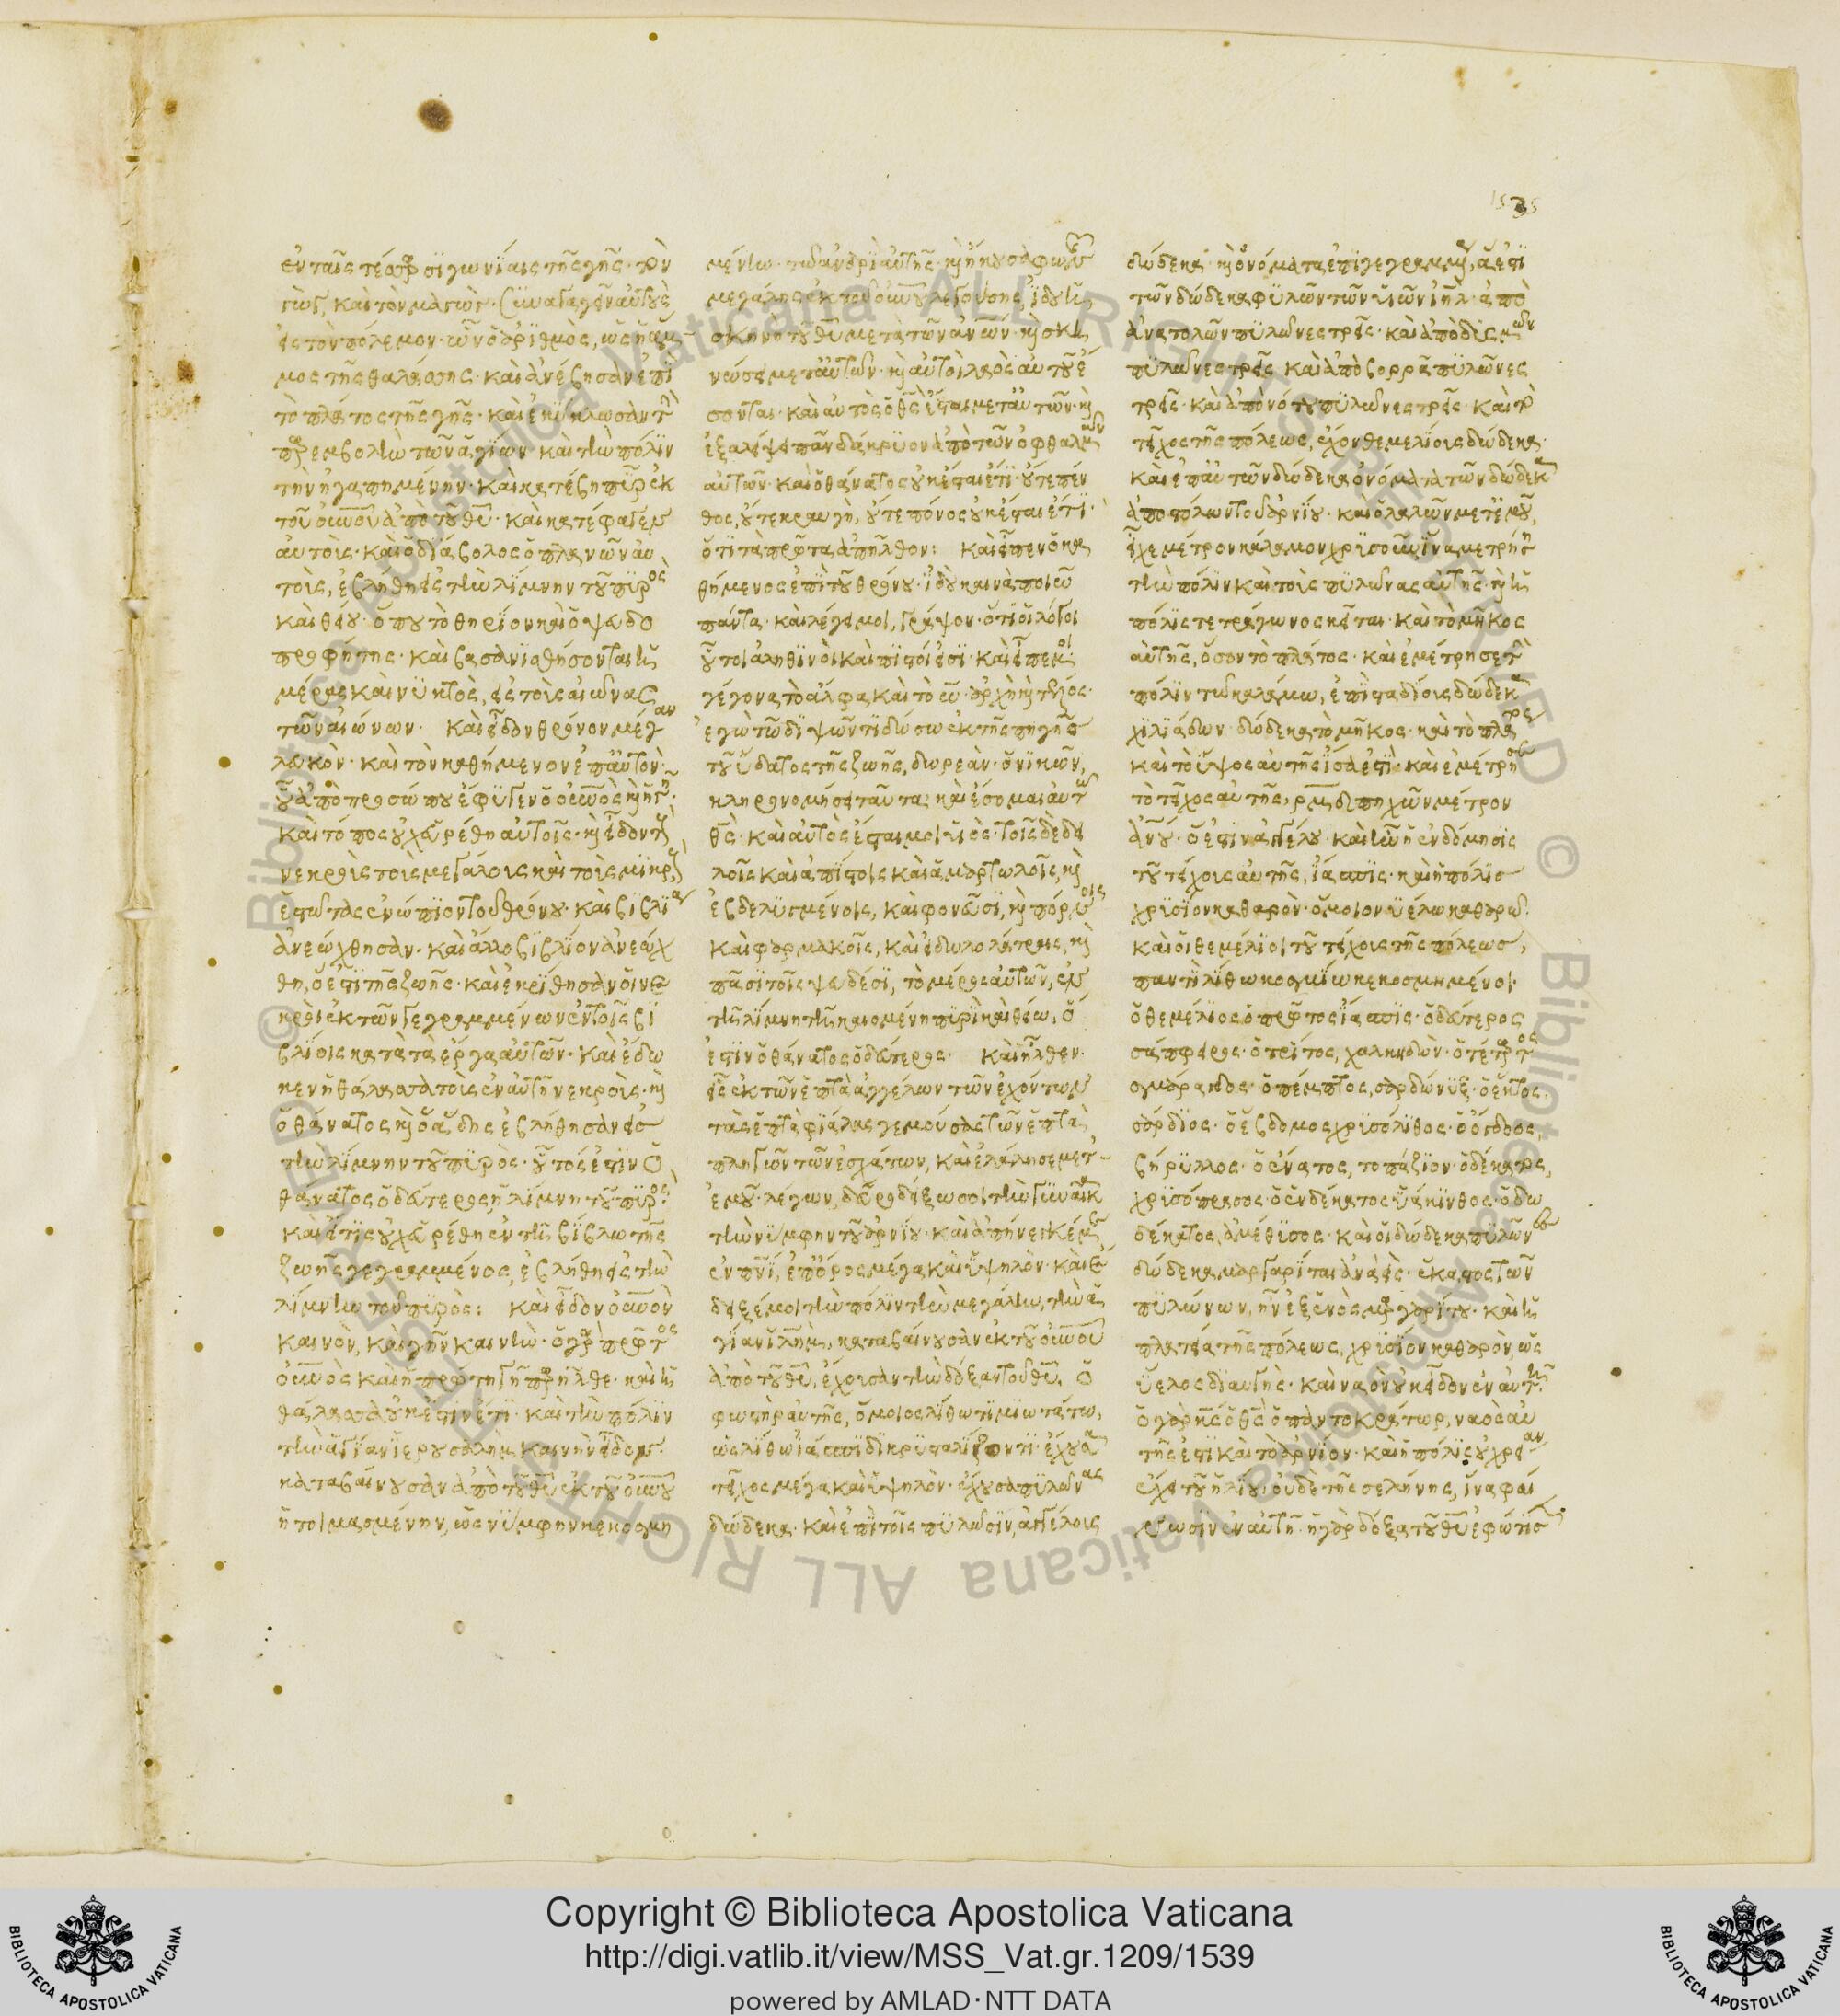 1535
ἐν ταῖς τέσαρσι γωνίαις τῆς γῆς· τὸν
γὼγ, καὶ τὸν μαγὼγ· συναγαγεῖν αὐτοὺς
εἰς τὸν πόλεμον· ὧν ὁ ἀριθμὸς, ὡς ἡ ἄμ
μος τῆς θαλάσσης· καὶ ἀνέβησαν ἐπὶ
τὸ πλάτος τῆς γῆς· καὶ ἐκύκλωσαν τὴν
παρεμβολὴν τῶν ἁγίων· καὶ τὴν πόλιν
τὴν ἠγαπημένην· καὶ κατέβη πῦρ ἐκ
τοῦ οὐνοῦ ἀπὸ τοῦ θυ· καὶ κατέφαγεν
αὐτοὺς· καὶ ὁ διάβολος ὁ πλανῶν αὐ
τοὺς, ἐβλήθη εἰς τὴν λίμνην τοῦ πυρὸς
καὶ θείου· ὅπου τὸ θηρίον καὶ ὁ ψευδο
προφήτης· καὶ βασανισθήσονται ἡ
μέρας καὶ νυκτὸς, εἰς τοὺς αἰῶνας
τῶν αἰώνων· καὶ εἶδον θρόνον μέγαν
λευκὸν· καὶ τὸν καθήμενον ἐπ αὐτὸν·
οὗ ἀπὸ προσώπου ἔφυγεν ὁ οὐνος καὶ ἡ γῆ·
καὶ τόπος οὐχ εὑρέθη αὐτοῖς· καὶ εἶδον τοὺς
νεκροὺς τοὺς μεγάλους καὶ τοὺς μικροὺς
ἑστῶτας ἐνώπιον τοῦ θρόνου· καὶ βιβλία
ἀνεώχθησαν· καὶ ἄλλο βιβλίον ἀνεώχ
θη, ὅ ἐστι τῆς ζωῆς· καὶ ἐκρίθησαν οἱ νε
κροὶ ἐκ τῶν γεγραμμένων ἐν τοῖς βι
βλίοις κατὰ τὰ ἔργα αὐτῶν· καὶ ἔδω
κεν ἡ θάλασσα τοὺς ἐν αὐτῇ νεκροὺς· καὶ
ὁ θάνατος καὶ ὁ ἅδης ἐβλήθησαν εἰς
τὴν λίμνην τοῦ πυρός· οὗτός ἐστιν ὁ
θάνατος ὁ δεύτερος ἡ λίμνη τοῦ πυρός·
καὶ εἴ τις οὐχ εὑρέθη ἐν τῇ βίβλῳ τῆς
ζωῆς γεγραμμένος, ἐβλήθη εἰς τὴν
λίμνην τοῦ πυρός: καὶ εἶδον οὐνον
καινὸν, καὶ γῆν καινὴν· ὁ γὰρ πρῶτος
οὐνος καὶ ἡ πρώτη γῆ παρῆλθε· καὶ ἡ
θάλασσα οὐκ ἔστιν ἔτι· καὶ τὴν πόλιν
τὴν ἁγίαν ἱερουσαλὴμ καινὴν εἶδον·
καταβαίνουσαν ἀπὸ τοῦ θυ ἐκ τοῦ οὐνου
ἡτοιμασμένην, ὡς νύμφην κεκοσμη
μένην· τῷ ἀνδρὶ αὐτῆς· καὶ ἤκουσα φωνῆς
μεγάλης ἐκ τοῦ οὐνου λεγούσης· ἰδοὺ ἡ
σκηνὴ τοῦ θυ μετὰ τῶν ἀνων· καὶ σκη
νώσει μετ αὐτῶν· καὶ αὐτοὶ λαὸς αὐτοῦ ἔ
σονται· καὶ αὐτὸς ὁ θς ἔσται μετ αὐτῶν· καὶ
ἐξαλείψει πᾶν δάκρυον ἀπὸ τῶν ὀφθαλμῶν
αὐτῶν· καὶ ὁ θάνατος οὐκ ἔσται ἔτι· οὔτε πέν
θος, οὔτε κραυγὴ, οὔτε πόνος οὐκ ἔσται ἔτι·
ὅτι τὰ πρῶτα ἀπῆλθον: καὶ εἶπεν ὁ κα
θήμενος ἐπὶ τοῦ θρόνου· ἰδοὺ καινὰ ποιῶ
πάντα· καὶ λέγει μοι, γράψον· ὅτι οἱ λόγοι
οὗτοι ἀληθινοὶ καὶ πιστοί εἰσι· καὶ εἶπέ μοι
γέγονα τὸ ἄλφα καὶ τὸ ω· ἀρχὴ καὶ τέλος·
ἐγὼ τῷ διψῶντι δώσω ἐκ τῆς πηγῆς
τοῦ ὕδατος τῆς ζωῆς, δωρεάν· ὁ νικῶν,
κληρονομήσει ταῦτα· καὶ ἔσομαι αὐτοῦ
θς· καὶ αὐτὸς ἔσται μοι υἱός· τοῖς δὲ δει
λοῖς καὶ ἀπίστοις καὶ ἁμαρτωλοῖς, καὶ
ἐβδελυγμένοις, καὶ φονεῦσι, καὶ πόρνοις
καὶ φαρμακοῖς, καὶ εἰδωλολάτραις, καὶ
πᾶσι τοῖς ψευδέσι, τὸ μέρος αὐτῶν, ἐν
τῇ λίμνῃ τῇ καιομένῃ πυρὶ καὶ θείῳ, ὅ
ἐστιν ὁ θάνατος ὁ δεύτερος· καὶ ἦλθεν
εἷς ἐκ τῶν ἑπτὰ ἀγγέλων τῶν ἐχόντων
τὰς ἑπτὰ φιάλας γεμούσας τῶν ἑπτὰ
πληγῶν τῶν ἐσχάτων, καὶ ἐλάλησε μετ
ἐμοῦ· λέγων, δεῦρο δείξω σοι τὴν γυναῖκα
τὴν νύμφην τοῦ ἀρνίου· καὶ ἀπήνεγκέ με
ἐν πνι, ἐπ ὄρος μέγα καὶ ὑψηλὸν· καὶ ἔ
δειξέ μοι τὴν πόλιν τὴν μεγάλην, τὴν ἁ
γίαν ιλημ, καταβαίνουσαν ἐκ τοῦ οὐνου
ἀπὸ τοῦ θυ, ἔχουσαν τὴν δόξαν τοῦ θυ, ὁ
φωστὴρ αὐτῆς, ὅμοιος λίθῳ τιμιωτάτῳ,
ὡς λίθῳ ἰάσπιδι κρυσταλίζοντι· ἔχουσα
τεῖχος μέγα καὶ ὑψηλὸν· ἔχουσα πυλῶνας
δώδεκα· καὶ ἐπὶ τοῖς πυλῶσιν, ἀγγέλους
δώδεκα· καὶ ὀνόματα ἐπιγεγραμμένα, ἅ ἐστι
τῶν δώδεκα φυλῶν τῶν υἱῶν ιηλ· ἀπὸ
ἀνατολῶν πυλῶνες τρεῖς· καὶ ἀπὸ δυσμῶν
πυλῶνες τρεῖς καὶ ἀπὸ βορρᾶ πυλῶνες
τρεῖς· καὶ ἀπὸ νότου πυλῶνες τρεῖς· καὶ τὸ
τεῖχος τῆς πόλεως, ἔχον θεμελίους δώδεκα·
καὶ ἐπ αὐτῶν δώδεκα ὀνόματα τῶν δώδεκα
ἀποστόλων τοῦ ἀρνίου· καὶ ὁ λαλῶν μετ ἐμοῦ,
εἶχε μέτρον κάλαμον χρυσοῦν ἵνα μετρήσῃ
τὴν πόλιν καὶ τοὺς πυλῶνας αὐτῆς· καὶ ἡ
πόλις τετράγωνος κεῖται· καὶ τὸ μῆκος
αὐτῆς, ὅσον τὸ πλάτος· καὶ ἐμέτρησε τὴν
πόλιν τῷ καλάμῳ, ἐπὶ σταδίους δώδεκα
χιλιάδων· δώδεκα τὸ μῆκος· καὶ τὸ πλάτος
καὶ τὸ ὕψος αὐτῆς ἴσα ἐστί· καὶ ἐμέτρησε
τὸ τεῖχος αὐτῆς, ρμδ πηχῶν μέτρον
ἀνου· ὅ ἐστιν ἀγγέλου· καὶ ἦν ἡ ἐνδόμησις
τοῦ τείχους αὐτῆς, ἴασπις· καὶ ἡ πόλις
χρυσίον καθαρὸν· ὅμοιον ὑέλῳ καθαρῷ·
καὶ οἱ θεμέλιοι τοῦ τείχους τῆς πόλεως,
παντὶ λίθῳ κοσμίῳ κεκοσμημένοι·
ὁ θεμέλιος ὁ πρῶτος ἴασπις· ὁ δεύτερος
σάπφειρος· ὁ τρίτος, χαλκηδών· ὁ τέταρτος
σμάραγδος· ὁ πέμπτος, σαρδώνυξ· ὁ ἕκτος,
σάρδιος· ὁ ἕβδομος χρυσόλιθος· ὁ ὄγδοος,
βήρυλλος· ὁ ἔνατος, τοπάζιον· ὁ δέκατος,
χρυσόπρασος· ὁ ἑνδέκατος ὑάκινθος· ὁ δω
δέκατος, ἀμέθυσος· καὶ οἱ δώδεκα πυλῶνες
δώδεκα μαργαρῖται ἀνὰ εἷς· ἕκαστος τῶν
πυλώνων, ἦν ἐξ ἑνὸς μαργαρίτου· καὶ ἡ
πλατεῖα τῆς πόλεως, χρυσίον καθαρὸν, ὡς
ὕελος διαυγής· καὶ ναὸν οὐκ εἶδον ἐν αὐτῇ·
ὁ γὰρ κς ὁ θς ὁ παντοκράτωρ, ναὸς αὐ
τῆς ἐστι καὶ τὸ ἀρνίον· καὶ ἡ πόλις οὐ χρείαν
ἔχει τοῦ ἡλίου· οὐδὲ τῆς σελήνης, ἵνα φαί
νωσιν ἐν αὐτῇ· ἡ γὰρ δόξα τοῦ θυ ἐφώτισ
© Biblioteca Apostolica Vaticana ALL RIGHTS RESERVED
© Biblioteca Apostolica Vaticana ALL RIGHTS RESERVED
Copyright © Biblioteca Apostolica Vaticana
http://digi.vatlib.it/view/MSS_Vat.gr.1209/1539
powered by AMLAD·NTT DATA
BIBLIOTECA APOSTOLICA VATICANA
BIBLIOTECA APOSTOLICA VATICANA